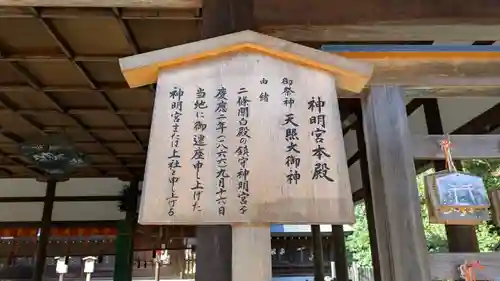 神明宮本殿
御祭神 天照大御神
由緒
慶應二年(一八六六)九月十六日
二條関白殿の鎮守神明宮を
当地に御遷座申し上げた
神明宮または上社と申し上げる